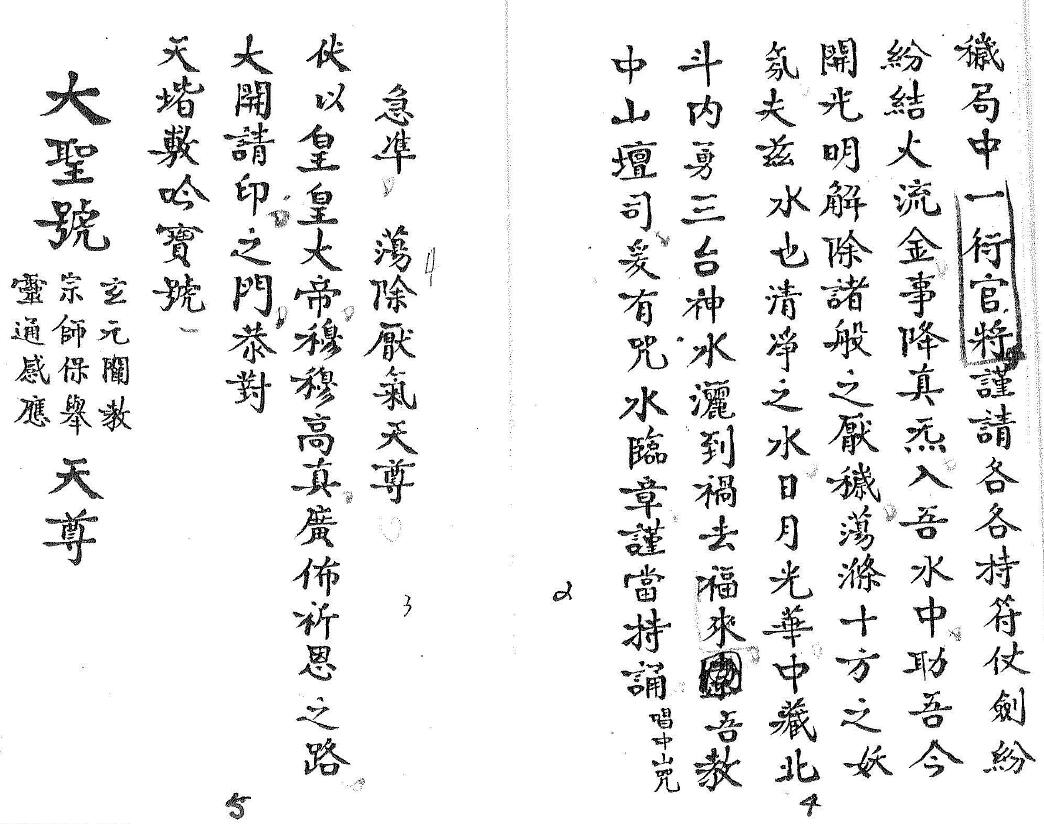 穢局中一行官將謹請各各持符仗劍紛
紛結火流金事降真炁入吾水中助吾今
開光明解除諸般之厭穢蕩滌十方之妖
氛夫茲水也清淨之水日月光華中藏北
斗內勇三台神水灑到禍去福來吾教
中山壇司爰有咒水臨章謹當持誦
唱中山咒
4
2
急準 蕩除厭氣天尊
4
3
伏以皇皇大帝穆穆高真廣佈祈恩之路
大開請印之門恭對
天堦敷吟寶號
大聖號
玄元闡教
宗師保舉
靈通感應
天尊
5